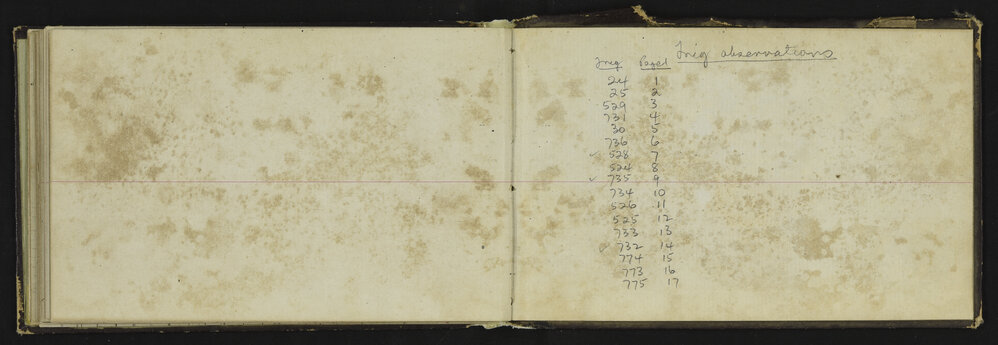 Trig observations
Trig Page
24 1
25 2
529 3
731 4
30 5
736 6
✓ 528 7
524 8
✓ 735 9
734 10
526 11
525 12
733 13
732 14
774 15
773 16
775 17